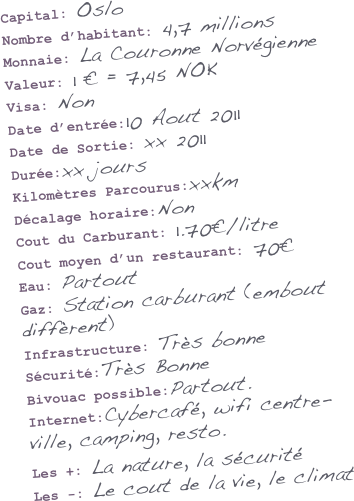 Capital: Oslo
Nombre d'habitant: 4,7 millions
Monnaie: La Couronne Norvégienne
Valeur: 1 € = 7,45 NOK
Visa: Non
Date d'entrée:10 Aout 2011
Date de Sortie: xx 2011
Durée:xx jours
Kilomètres Parcourus:xxkm
Décalage horaire:Non
Cout du Carburant: 1.70€/litre
Cout moyen d'un restaurant: 70€
Eau: Partout
Gaz: Station carburant (embout
diffèrent)
Infrastructure: Très bonne
Sécurité:Très Bonne
Bivouac possible:Partout.
Internet:Cybercafé, wifi centre-
ville, camping, resto.
Les +: La nature, la sécurité
Les -: Le cout de la vie, le climat